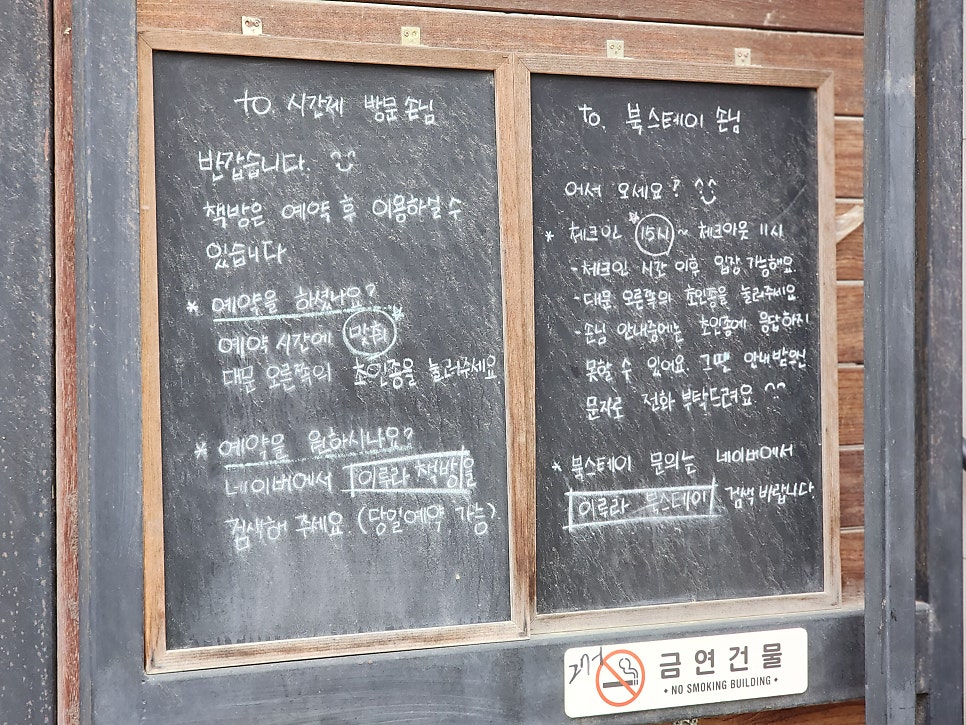 to. 시간제 방문 손님
반갑습니다.
책방은 예약 후 이용하실 수
있습니다
* 예약을 하셨나요?
예약 시간에 맞춰
대문 오른쪽의 초인종을 눌러주세요
* 예약을 원하시나요?
네이버에서 이루라 책방을
검색해 주세요 (당일예약 가능)
to. 북스테이 손님
어서 오세요?
* 체크인 15시 ~ 체크아웃 11시
- 체크인 시간 이후 입장 가능해요.
- 대문 오른쪽의 초인종을 눌러주세요
- 손님 안내중에는 초인종에 응답하지
못할 수 있어요. 그땐 안내받으신
문자로 전화 부탁드려요 ^^
* 북스테이 문의는 네이버에서
이루라 북스테이 검색 바랍니다.
금연건물
• NO SMOKING BUILDING •